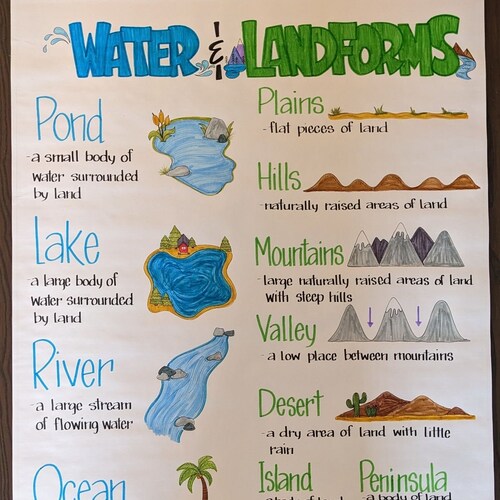 WATER & LANDFORMS
Pond
-a small body of
water surrounded
by land
Lake
-a large body of
water surrounded
by land
River
-a large stream
of flowing water
Ocean
Plains
-flat pieces of land
Hills
-naturally raised areas of land
Mountains
-large naturally raised areas of land
with sleep hills
Valley
-a low place between mountains
Desert
-a dry area of land with little
rain
Island
Peninsula
-a body of land